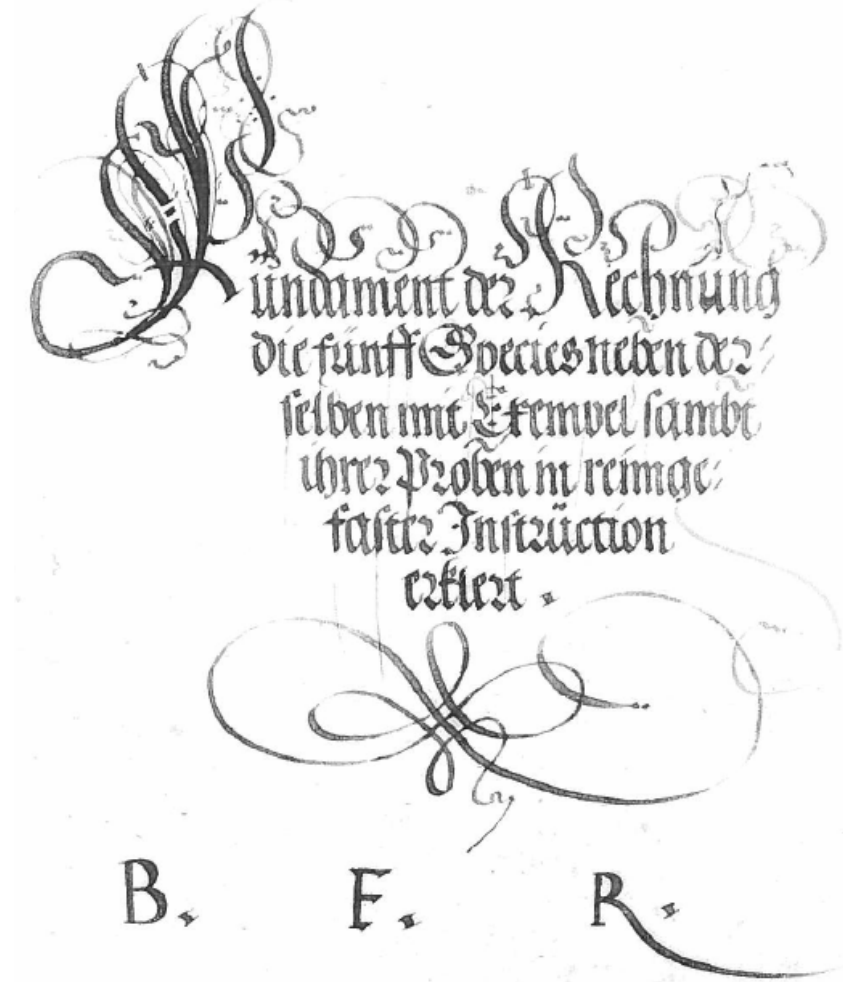 Fündament der Rechnüng
die fünff Species neben der⸗
selben mit Exempel sambt
ihrer Proben in reimge⸗
faster Instrüction
erklert.
B. F. R.